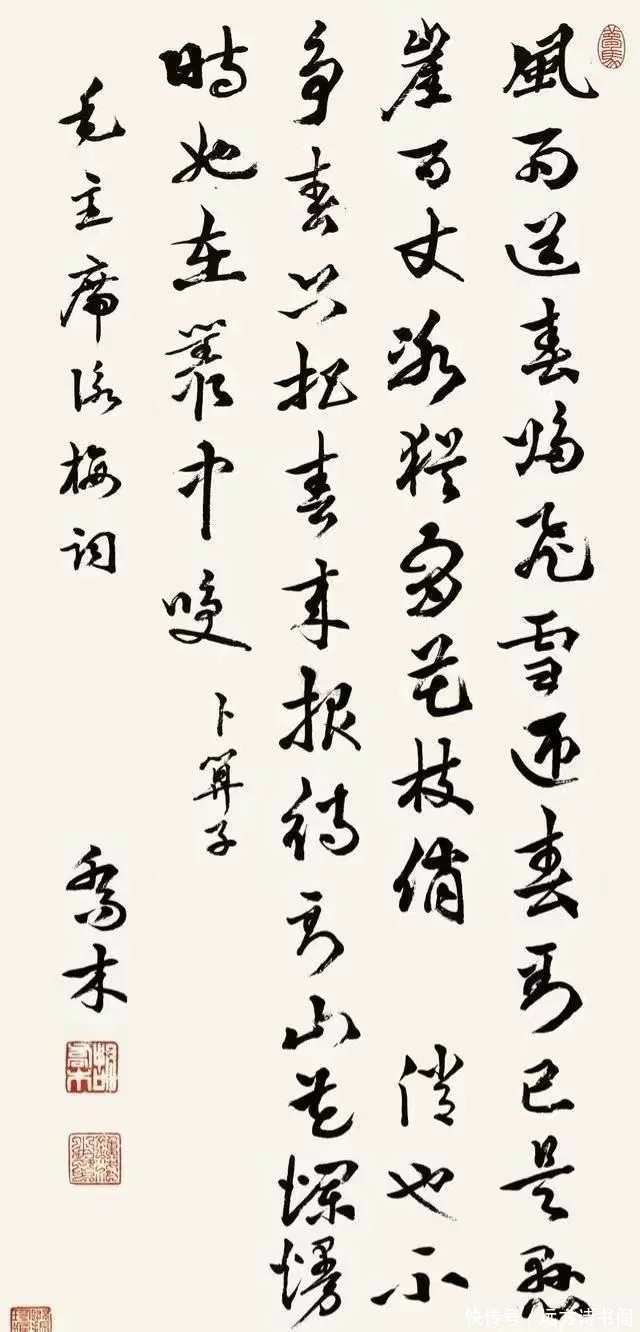 風雨送春歸飛雪迎春到已是懸
崖百丈冰猶有花枝俏 俏也不
争春只把春来报待到山花爛熳
時她在叢中咲 卜算子
毛主席詠梅詞 喬木
胡喬木
快传号/远方诗书阁